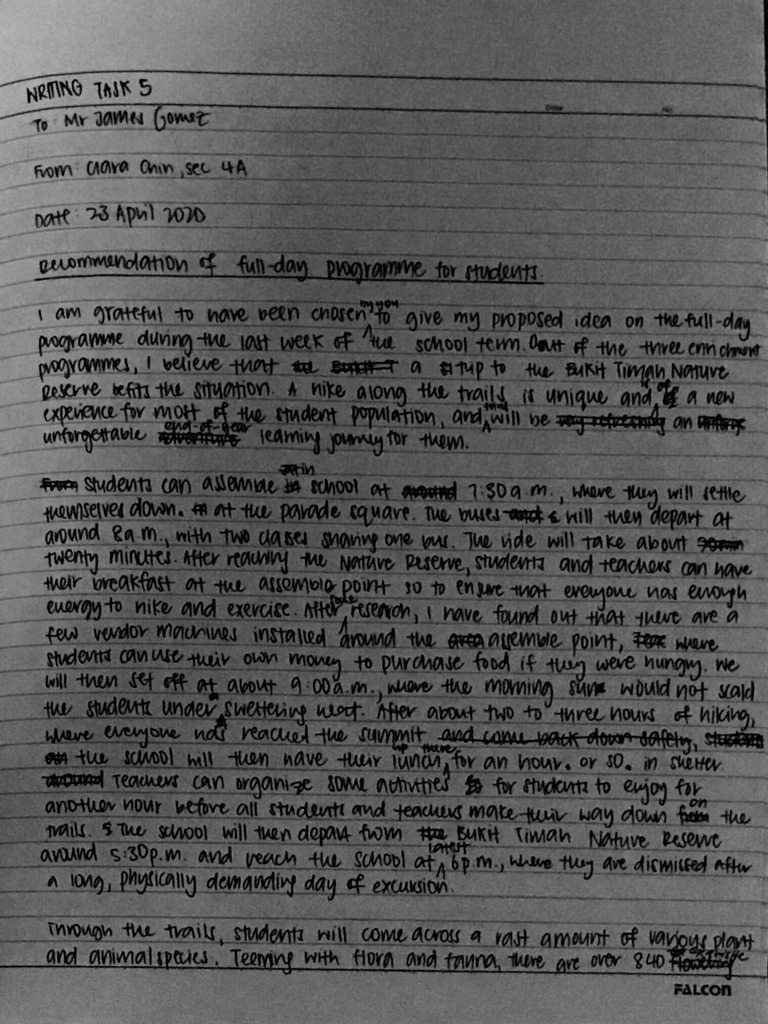 WRITING TASK 5
To: Mr James Gomez
From: Clara Chin, sec 4A
Date: 23 April 2020
Recommendation of full-day programme for students.
I am grateful to have been chosen by you to give my proposed idea on the full-day
programme during the last week of the school term. Out of the three enrichment
programmes, I believe that the Bukit T a trip to the Bukit Timah Nature
Reserve befits the situation. A hike along the trails is unique and is of a new
experience for most of the student population, and will be very refreshing an
unforgettable adventure end-of-year learning journey for them.
From students can assemble in school at around 7:30a.m., where they will settle
themselves down. at the parade square. The buses will then depart at
around 8a.m., with two classes sharing one bus. The ride will take about
twenty minutes. After reaching the Nature Reserve, students and teachers can have
their breakfast at the assemble point so to ensure that everyone has enough
energy to hike and exercise. After research, I have found out that there are a
few vendor machines installed around the area assemble point, where
students can use their own money to purchase food if they were hungry. We
will then set off at about 9:00a.m., where the morning sun would not scald
the students under sweltering heat. After about two to three hours of hiking,
where everyone has reached the summit and come back down safely,
the school will then have their lunch up there for an hour. or so. in shelter.
around Teachers can organize some activities for students to enjoy for
another hour before all students and teachers make their way down from on the
trails. The school will then depart from the Bukit Timah Nature Reserve
around 5:30p.m. and reach the school at latest 6p.m., where they are dismissed after
a long, physically demanding day of excursion.
Through the trails, students will come across a vast amount of various plant
and animal species. Teeming with flora and fauna, there are over 840 flowering
FALCON